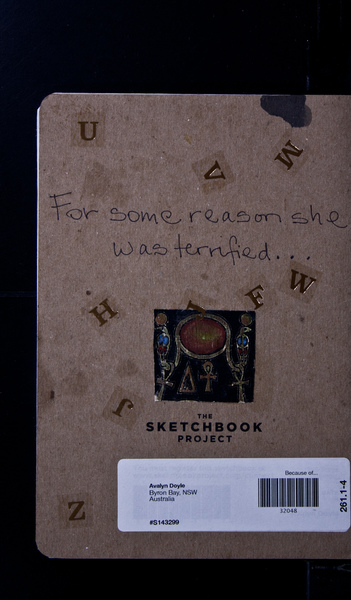 U
M
V
For some reason she
was terrified...
W
F
H
J
THE
SKETCHBOOK
PROJECT
Because of...
Avalyn Doyle
Byron Bay, NSW
Australia
32048
261.1-4
#S143299
Z